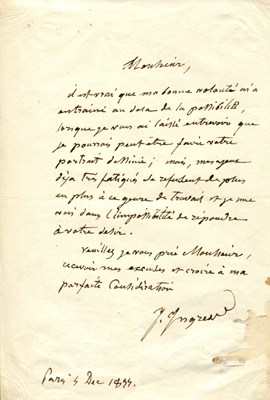 Monsieur,
il est vrai que ma bonne volonté m'a
entrainé au dela de la possibilité,
lorsque je vous ai laissé entrevoir que
je pourrais peut être faire votre
portrait dessiné; mais, mes yeux
déja très fatigués se refusent de plus
en plus à ce genre de travail et je me
vois dans l'impossibilité de répondre
à votre desir.
veuillez je vous prie Monsieur,
recevoir mes excuses et croire à ma
parfaite Considération
J. Ingres
Paris 5 Dec